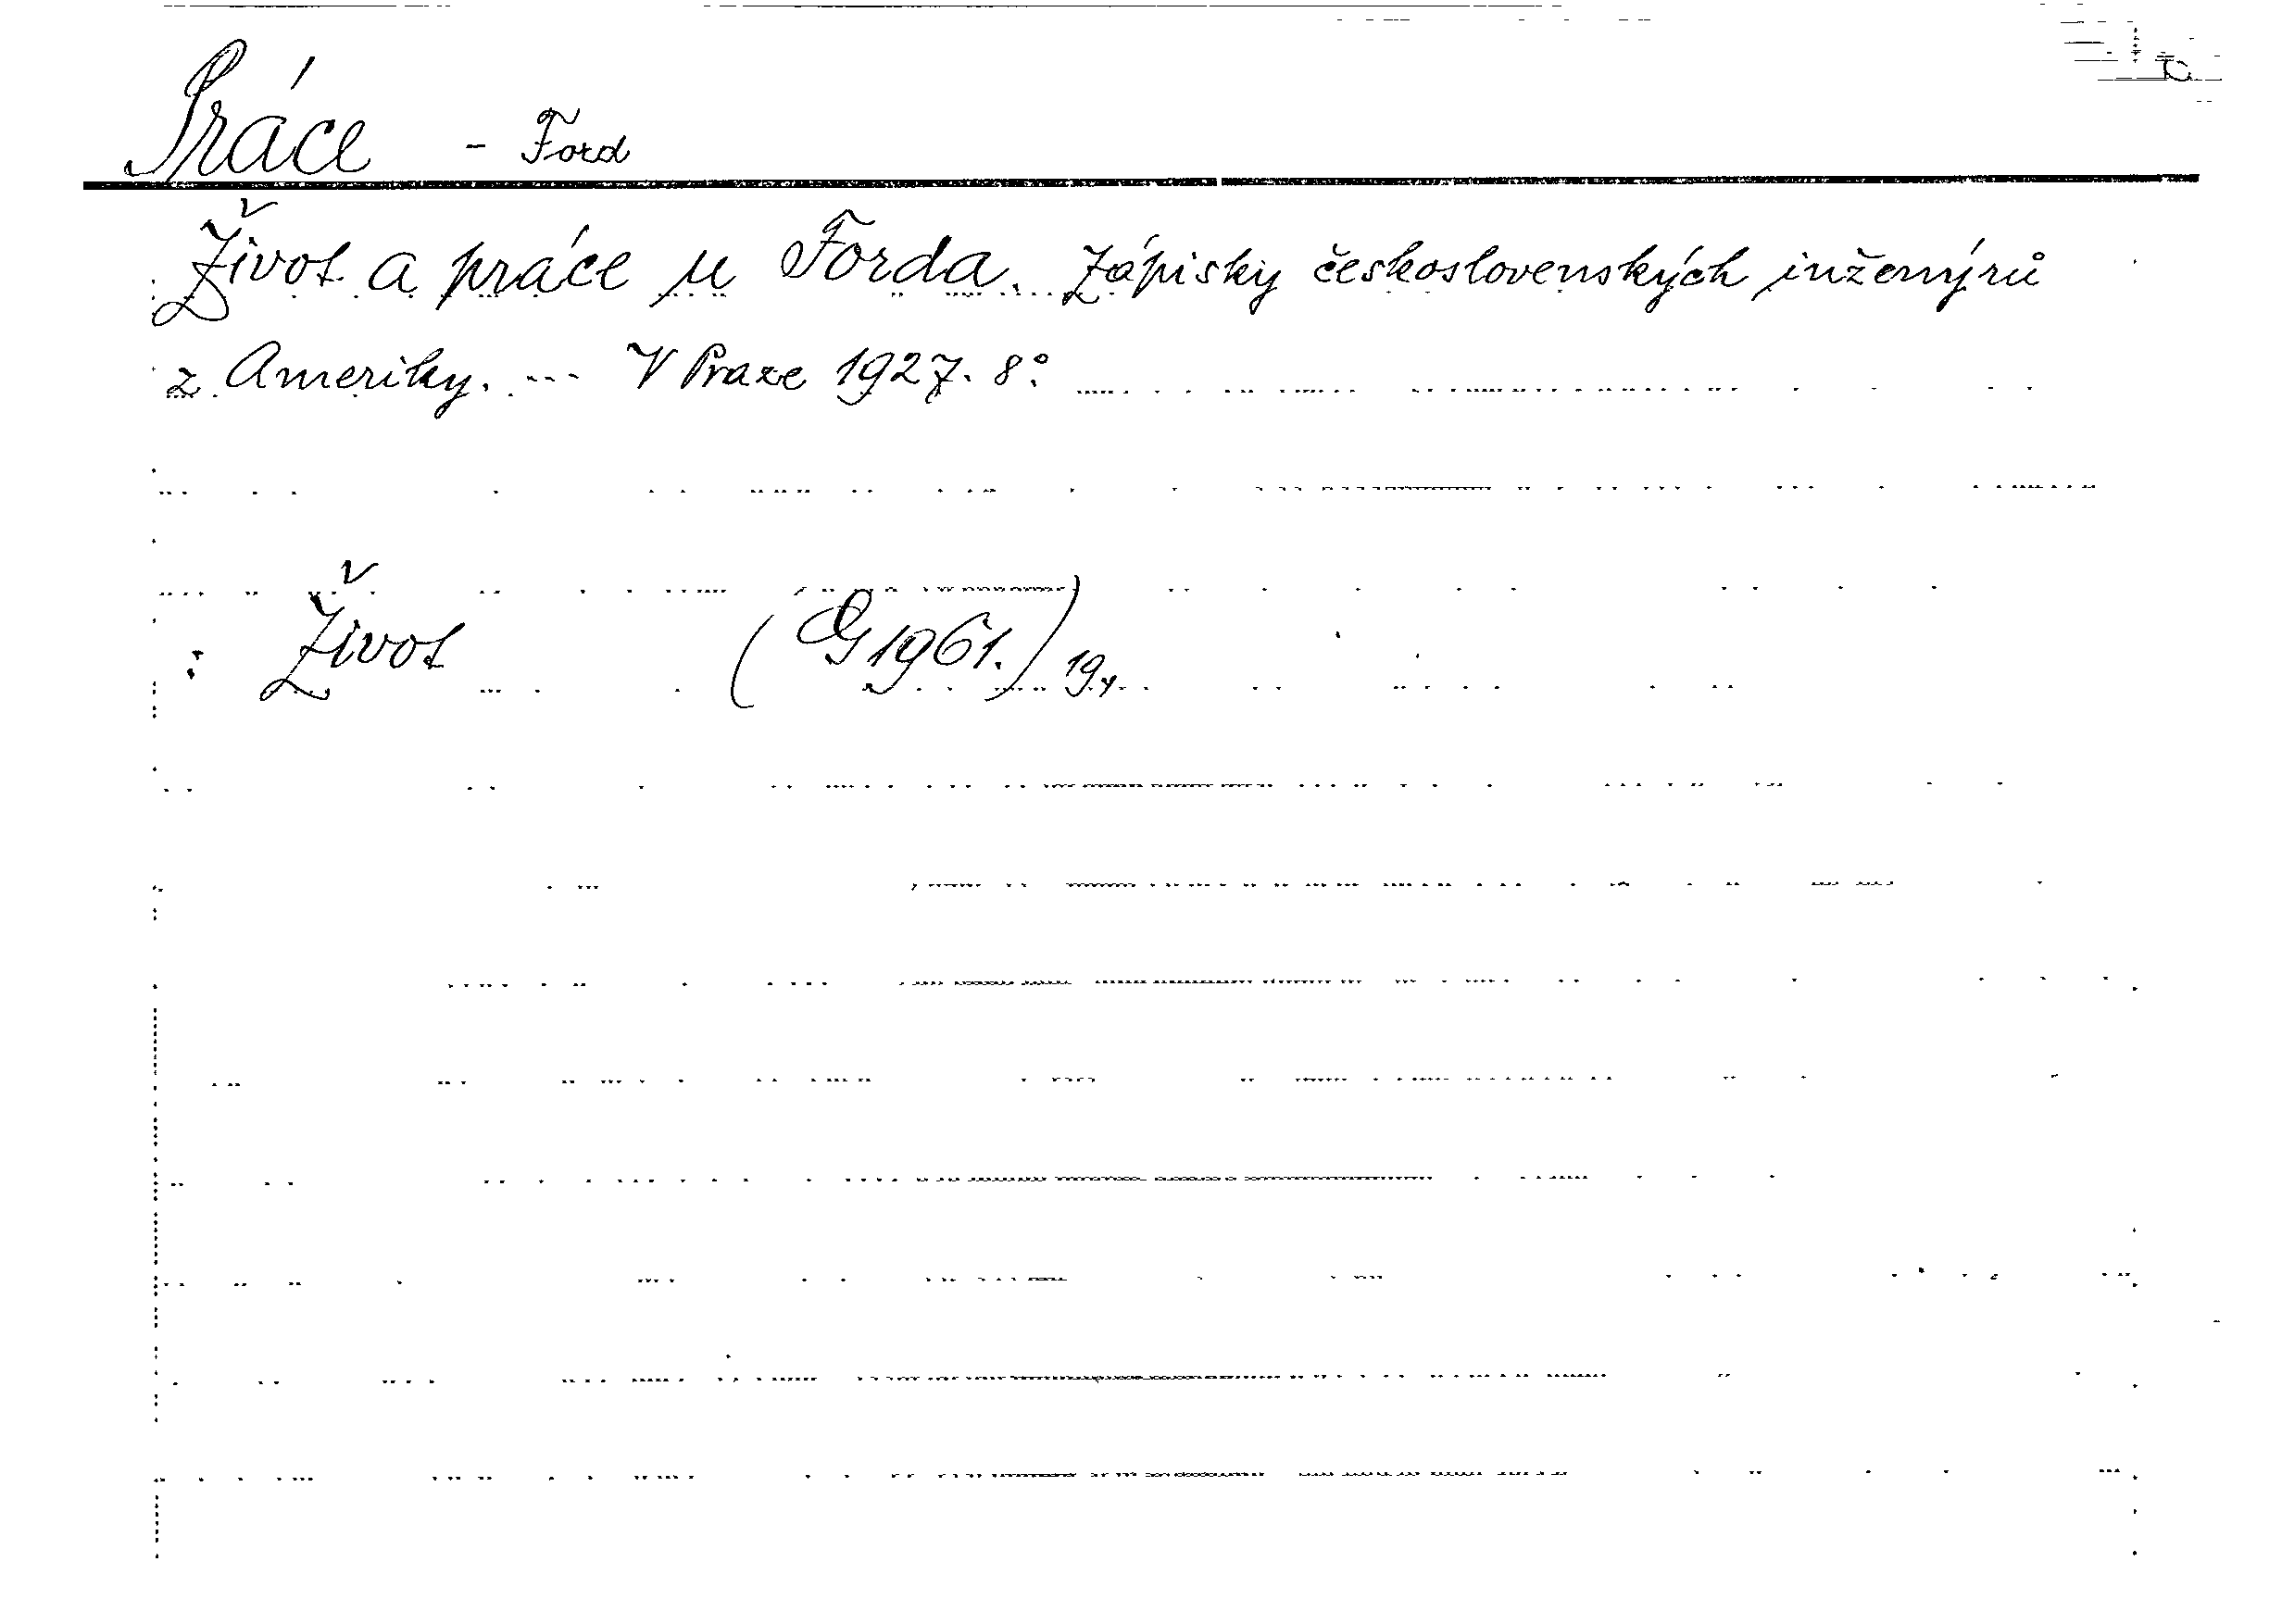 Práce - Ford
Život a práce u Forda. Zápisky československých inženýrů
z Ameriky. --- V Praze 1927. 8°.
: Život (G 1961.)